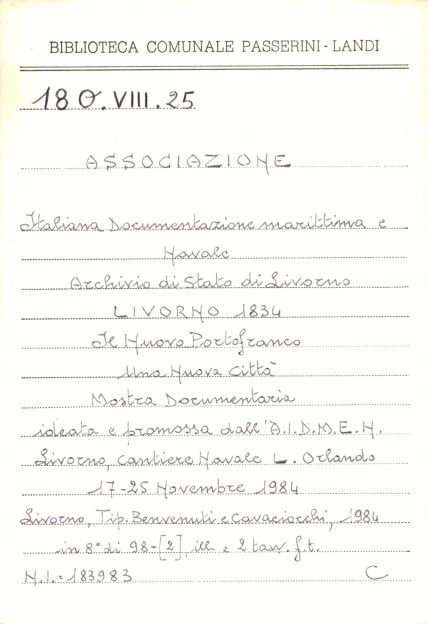 BIBLIOTECA COMUNALE PASSERINI-LANDI
18 O.VIII.25
ASSOCIAZIONE
Italiana Documentazione marittima e
Navale
Archivio di Stato di Livorno
LIVORNO 1834
Il Nuovo Portofranco
Una Nuova Città
Mostra Documentaria
ideata e promossa dall'A.I.D.M.E.N.
Livorno, Cantiere Navale L. Orlando
17-25 Novembre 1984
Livorno, Tip. Benvenuti e Cavaciocchi, 1984
in 8° di 98-[2], ill e 2 tav. f.t.
N.I.=183983 C